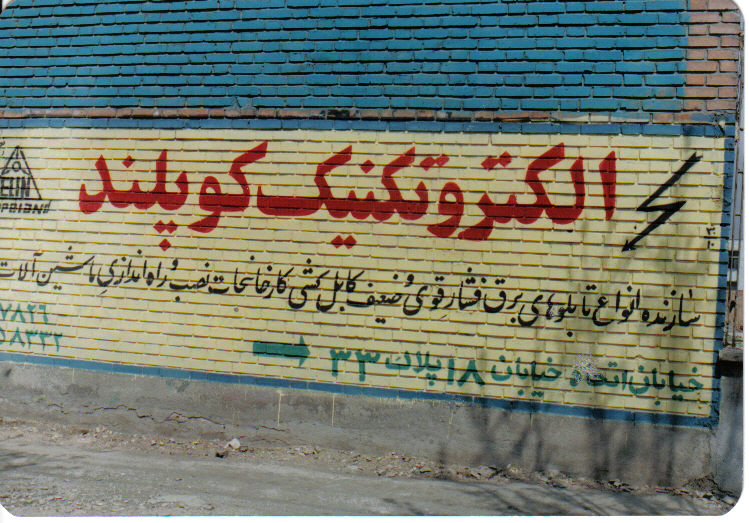 الکتروتکنیک کوپلند
سازنده انواع تابلوهای برق فشار قوی و ضعیف کابل کشی کارخانجات نصب و راه اندازی ماشین آلات
خیابان اتحاد خیابان ۱۸ پلاک ۳۳
ELIN
۷۸۲۶
۵۸۳۳۲